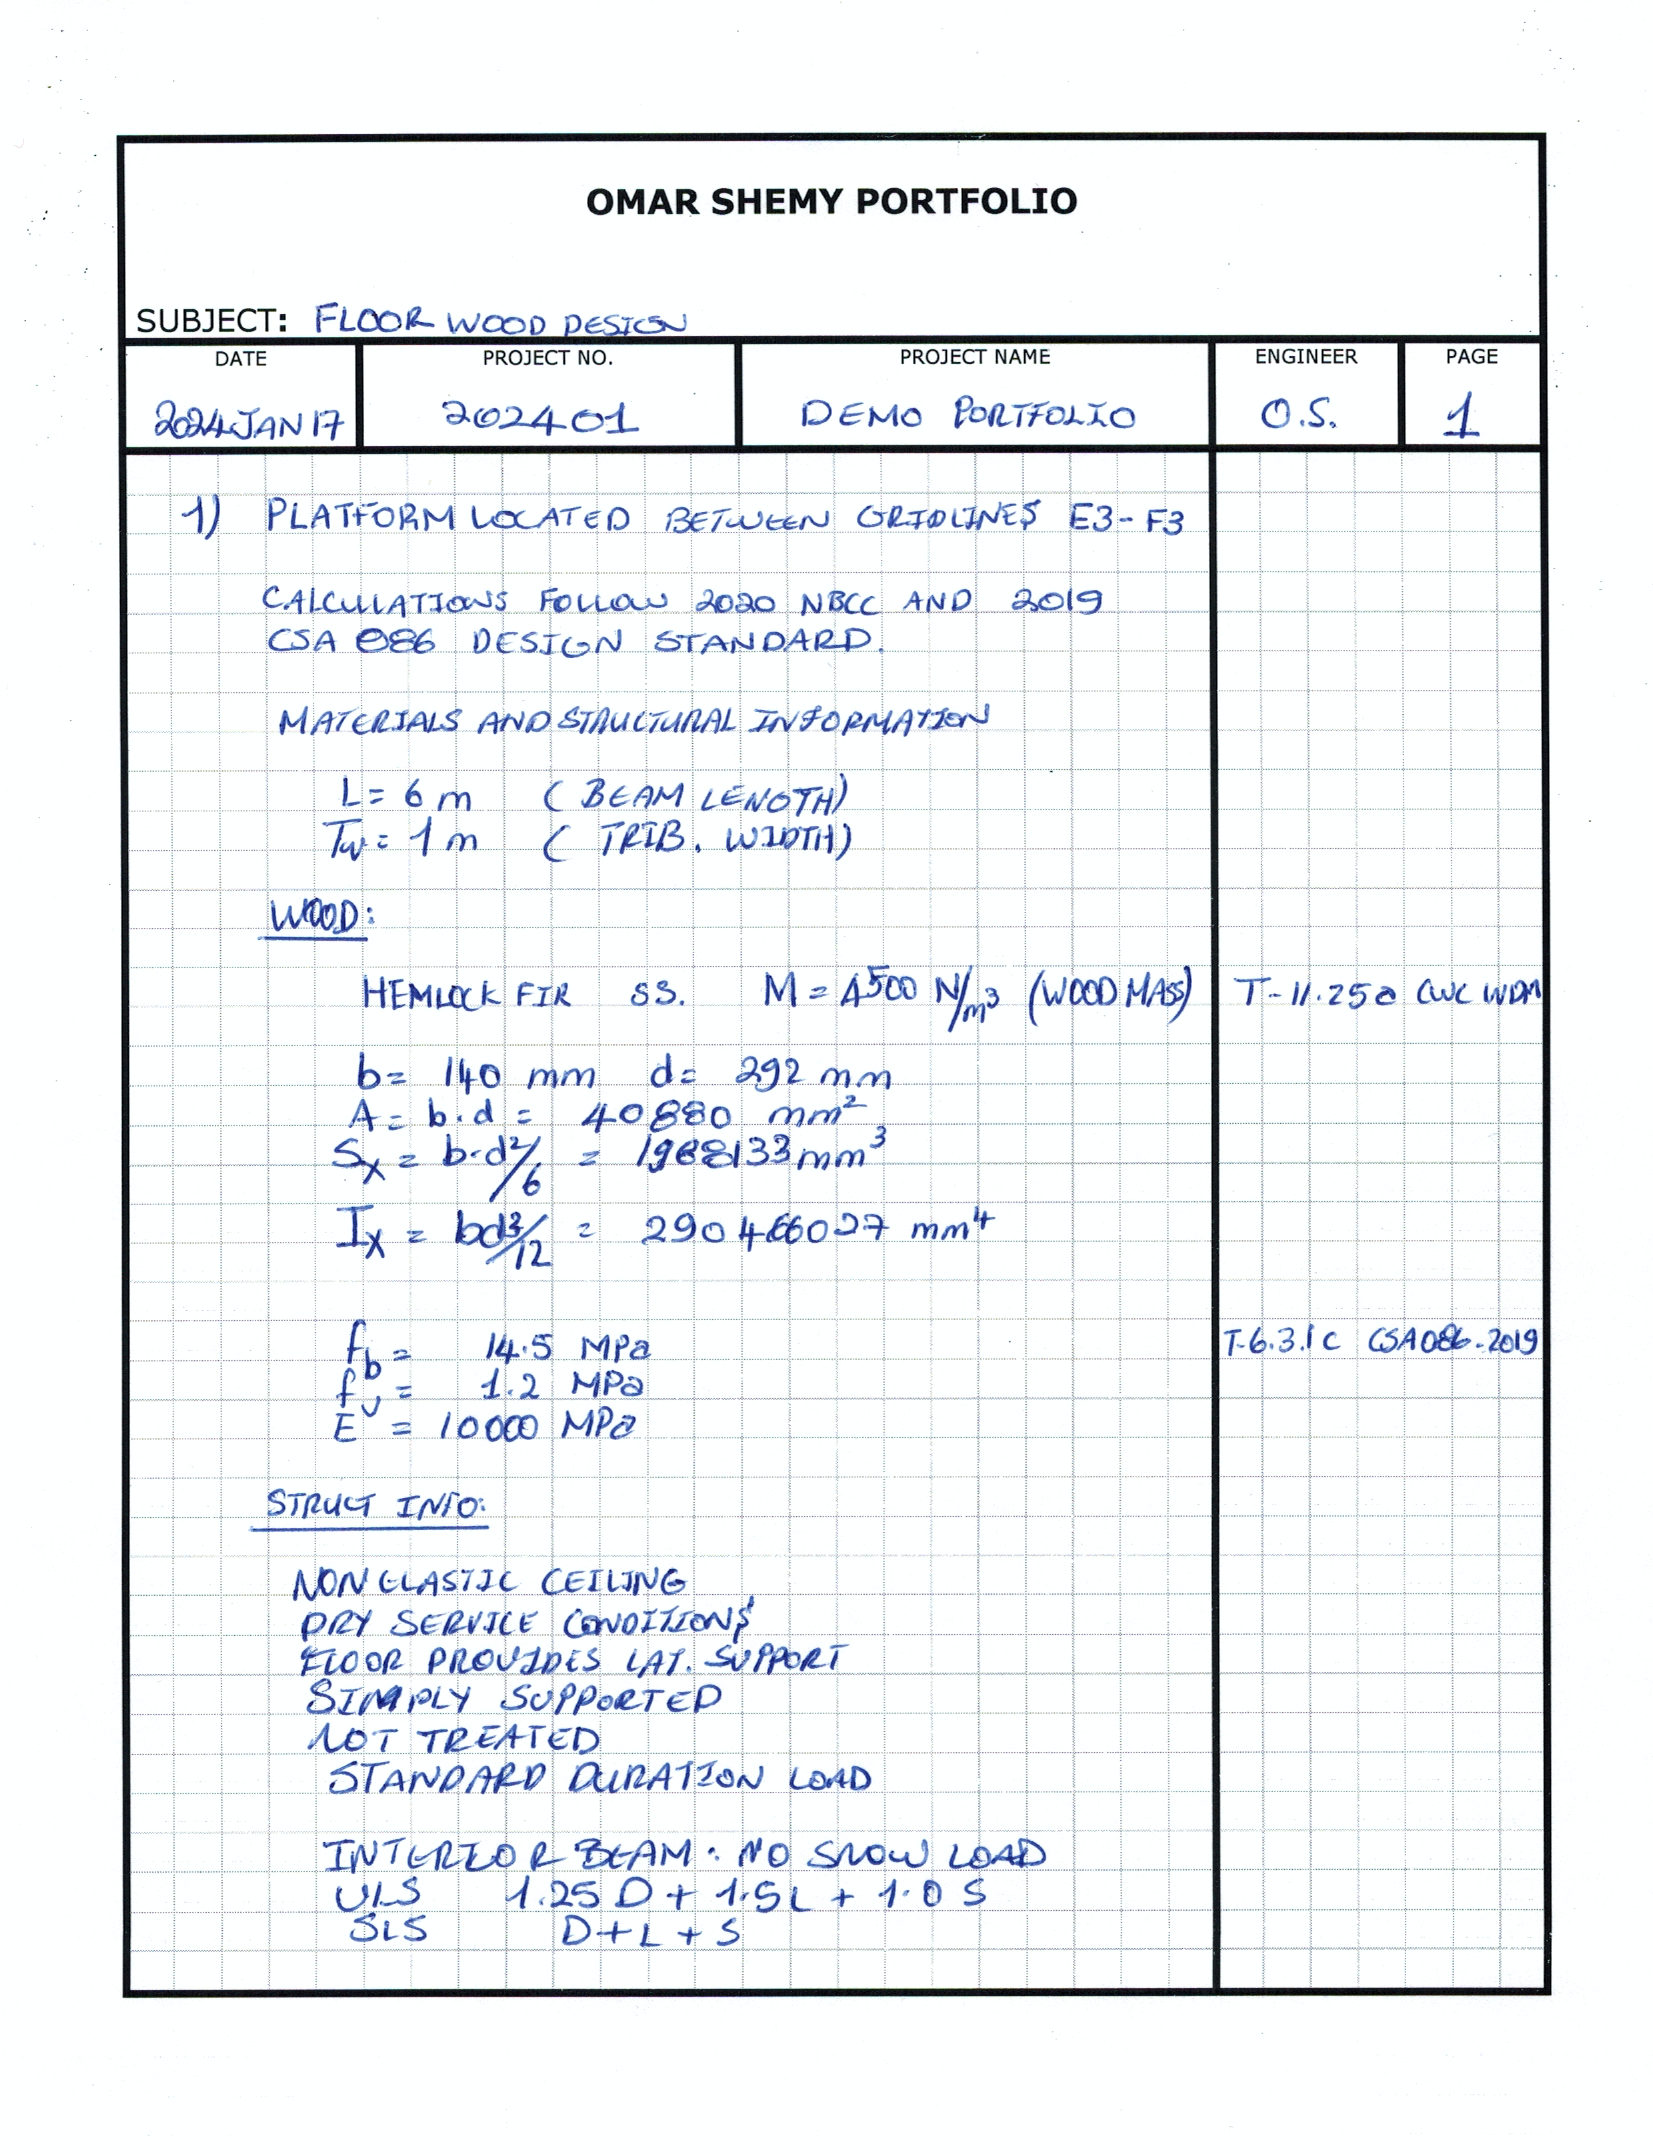 OMAR SHEMY PORTFOLIO
SUBJECT: FLOOR WOOD DESIGN
DATE PROJECT NO. PROJECT NAME ENGINEER PAGE
2024JAN17 202401 DEMO PORTFOLIO O.S. 1
1) PLATFORM LOCATED BETWEEN GRIDLINES E3-F3
CALCULATIONS FOLLOW 2020 NBCC AND 2019
CSA 086 DESIGN STANDARD.
MATERIALS AND STRUCTURAL INFORMATION
L = 6 m (BEAM LENGTH)
Tw = 1 m (TRIB. WIDTH)
WOOD:
HEMLOCK FIR SS. M = 4500 N/m³ (WOOD MASS) T-11.25a CWC WDM
b = 140 mm d = 292 mm
A = b.d = 40880 mm²
Sx = b.d²/6 = 1988133 mm³
Ix = bd³/12 = 290466027 mm⁴
fb = 14.5 MPa T-6.3.1C CSA086-2019
fv = 1.2 MPa
E = 10000 MPa
STRUCT INFO:
NON ELASTIC CEILING
DRY SERVICE CONDITIONS
FLOOR PROVIDES LAT. SUPPORT
SIMPLY SUPPORTED
NOT TREATED
STANDARD DURATION LOAD
INTERIOR BEAM: NO SNOW LOAD
ULS 1.25 D + 1.5L + 1.0 S
SLS D+L+S